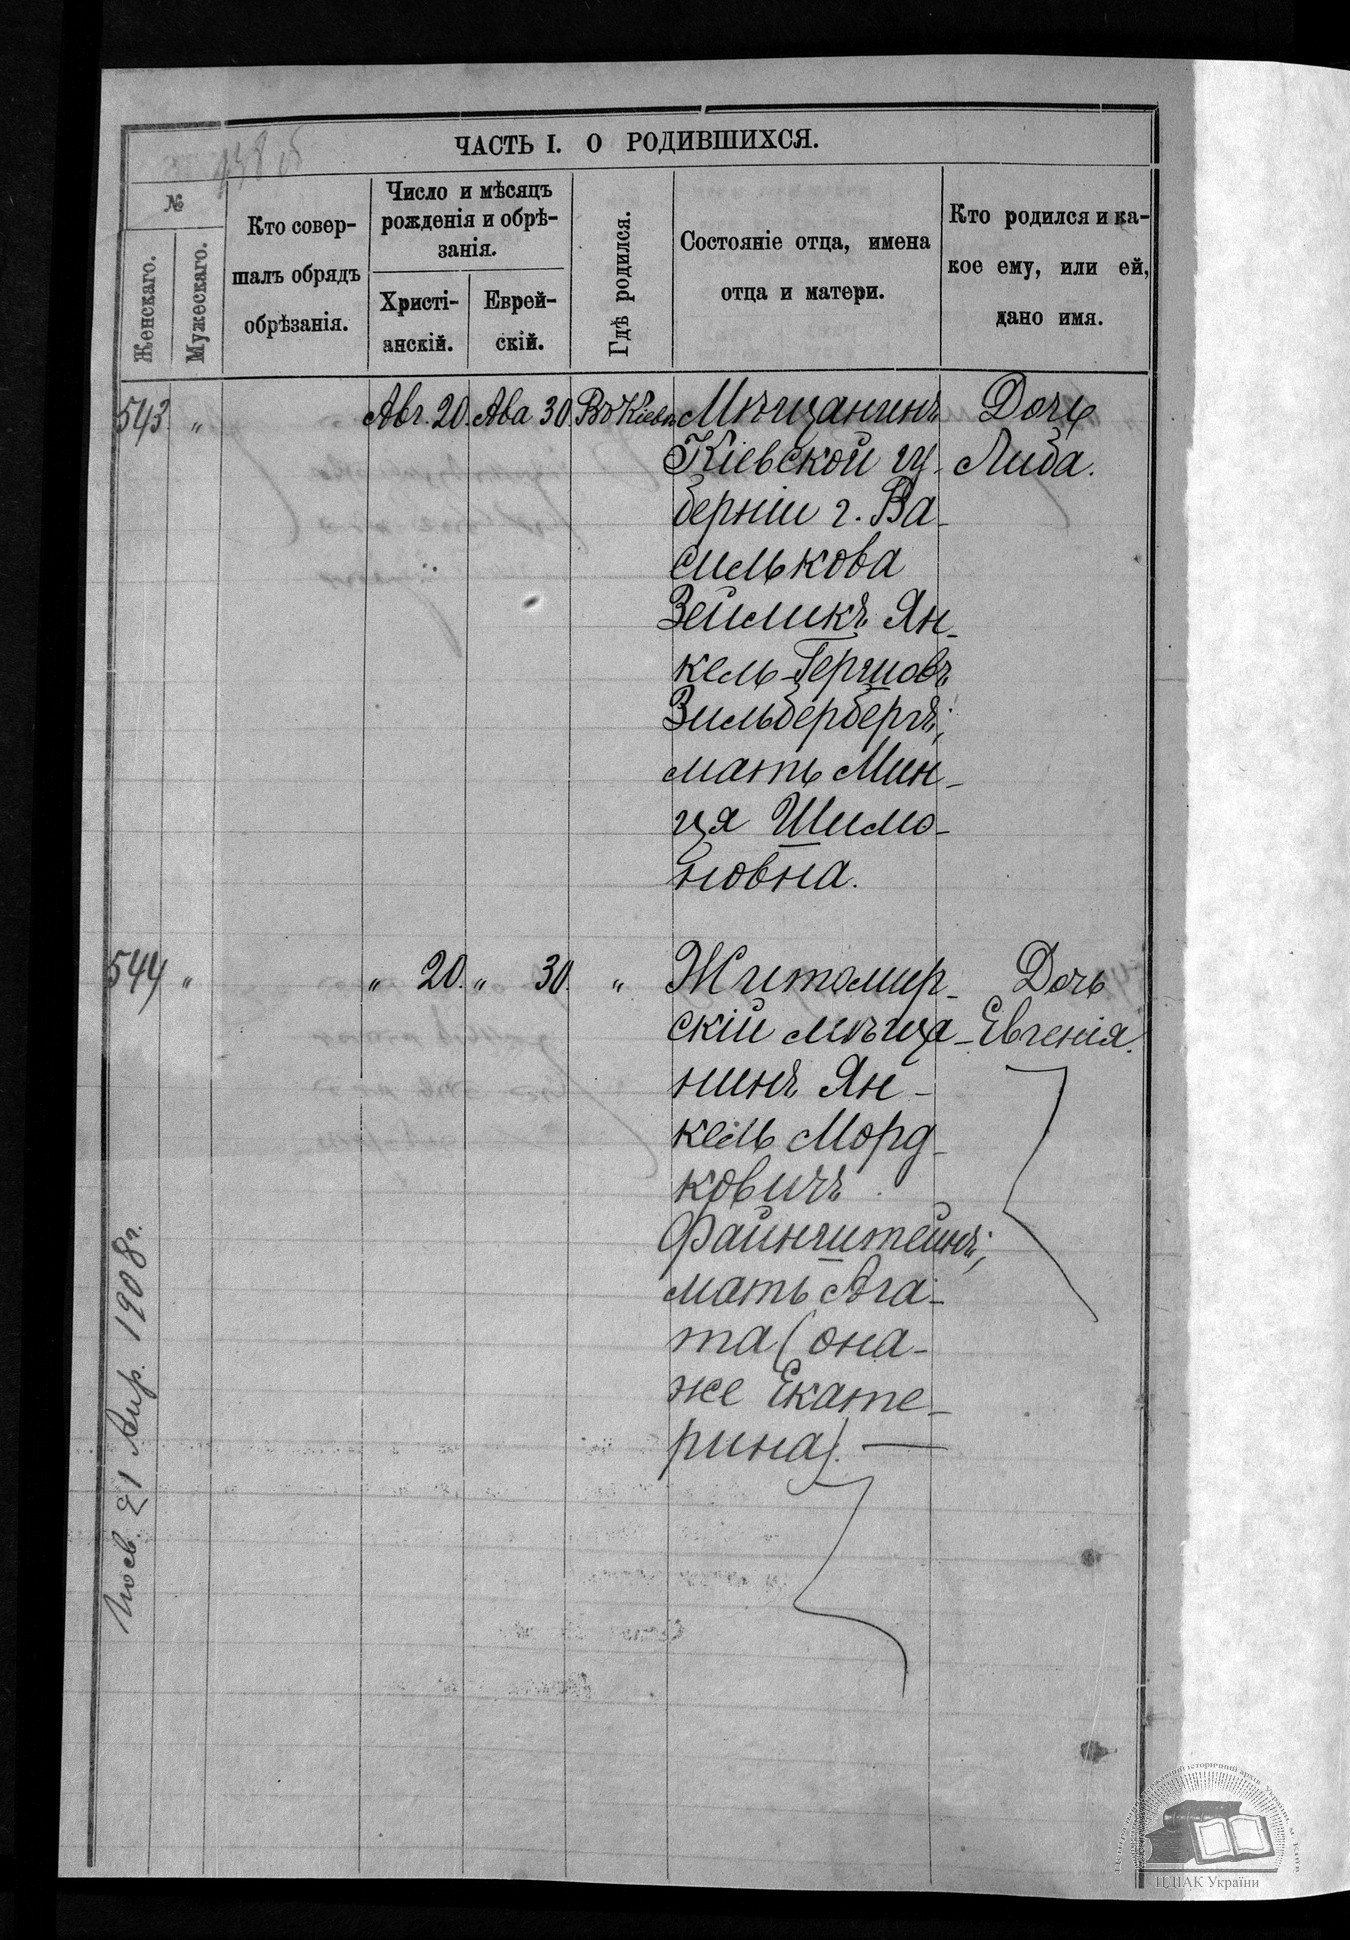 ЧАСТЬ I. О РОДИВШИХСЯ.
№
Женскаго.
Мужескаго.
Кто совер-
шалъ обрядъ
обрѣзанія.
Число и мѣсяцъ
рожденія и обрѣ-
занія.
Христі-
анскій.
Еврей-
скій.
Гдѣ родился.
Состояніе отца, имена
отца и матери.
Кто родился и ка-
кое ему, или ей,
дано имя.
543 " Авг. 20. Ава 30. Въ Кіевѣ Мѣщанинъ Дочь
Кіевской гу- Либа.
берніи г. Ва-
силькова
Зейликъ Ян-
кель-Гершовъ
Зильбербергъ;
мать Мин-
ця Шимо-
новна.
544 " " 20. " 30. " Житомир- Дочь
скій мѣща- Евгенія.
нинъ Ян-
кель Морд-
ковичъ
Файнштейнъ;
мать Ага-
та (она-
же Екате-
рина). —
21 Апр. 1908 г.
ЦДІАК України